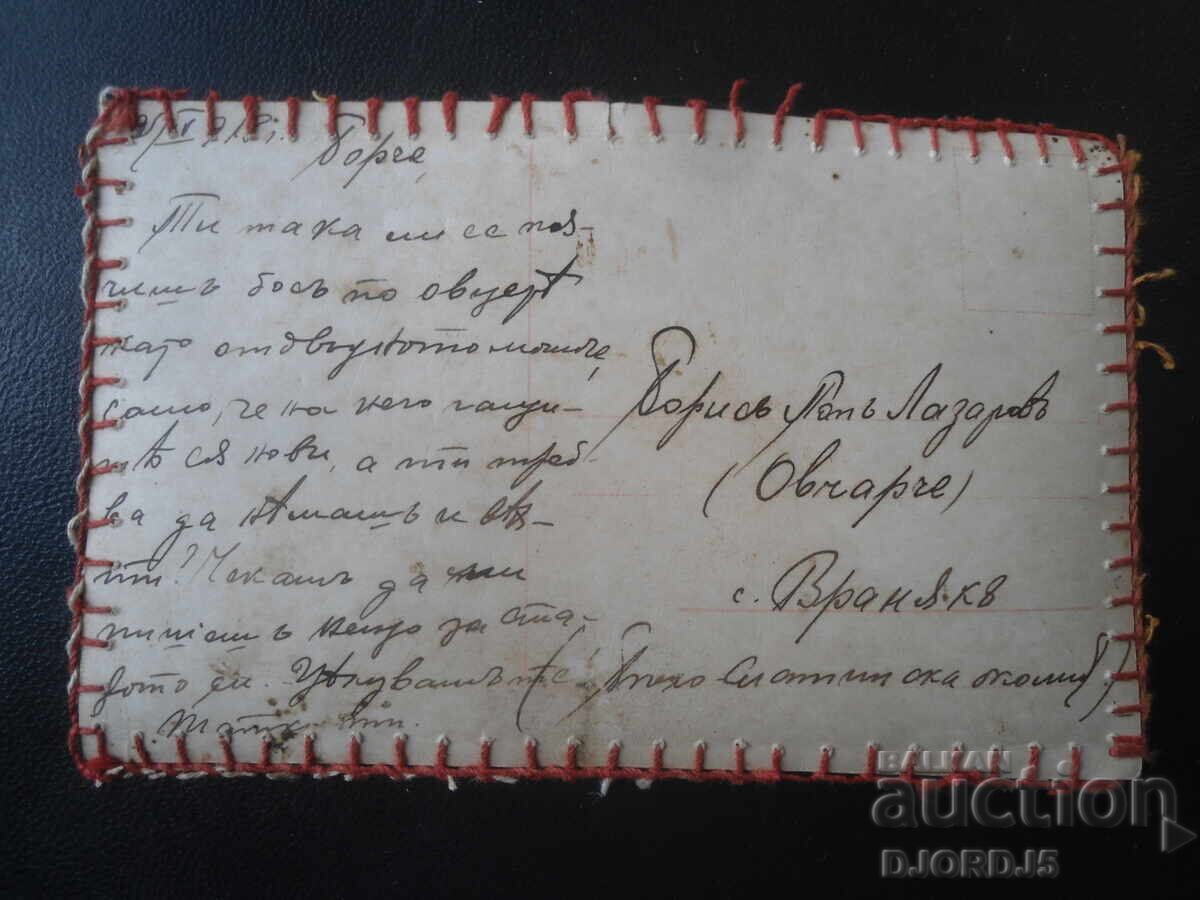 Борче,
Ти така ли се поя-
чишъ босъ по овцетѣ
като отдвѫдкото момче,
само, че на него гащи-
тѣ сѫ нови, а ти трѣб-
ва да нѣмашъ и
Чекамъ да ми
пишешъ нещо за ста-
дото си. Цѣлувамъ те
Борисъ Попъ Лазаровъ
(Овчарче)
с. Вранякъ
Слатинска околия)
BALKAN
auction
DJORDJ5